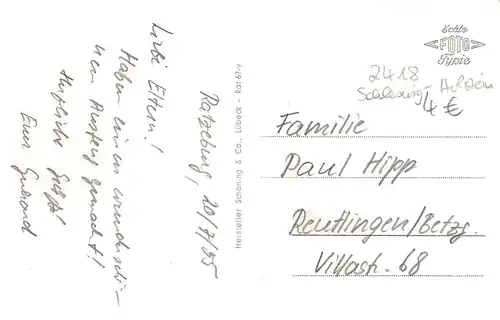 Ratzeburg, 20/7/55
Liebe Eltern!
Haben einen wunderschö-
nen Ausflug gemacht!
Herzliche Grüße!
Euer
Hersteller Schöning & Co., Lübeck - Rat 67-v
Echte
FOTO
Typie
2418
Schleswig-Holstein
4 €
Familie
Paul Hipp
Reutlingen/Betzg.
Villastr. 68